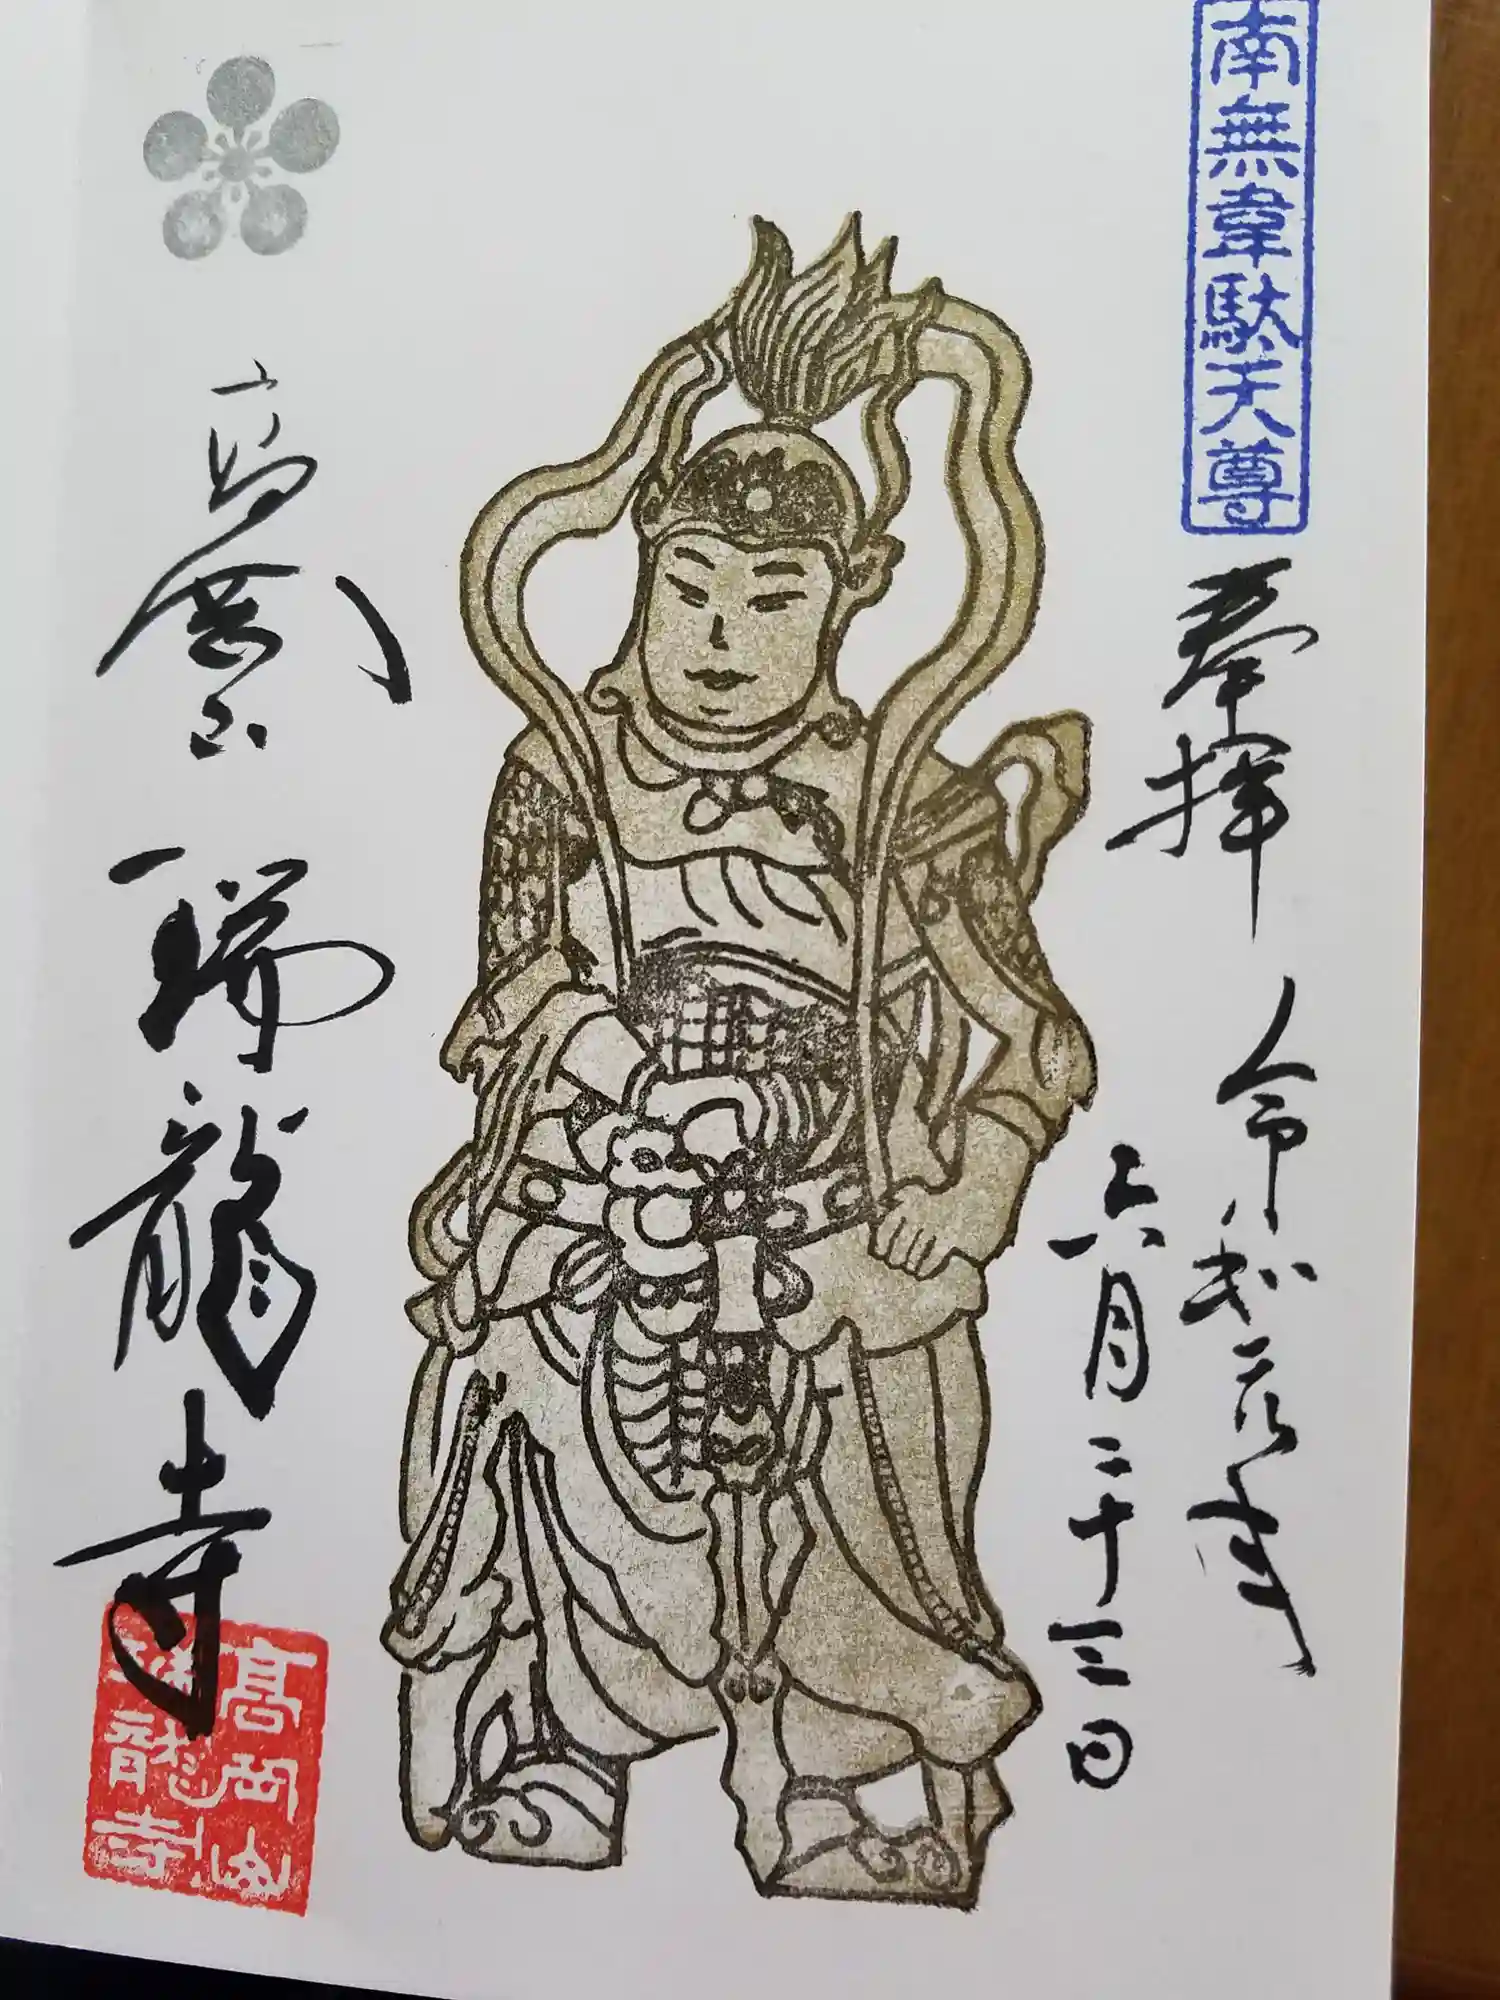 南無韋駄天尊
奉拝
令和六年
六月二十三日
高岡山
瑞龍寺
高岡山
瑞龍寺